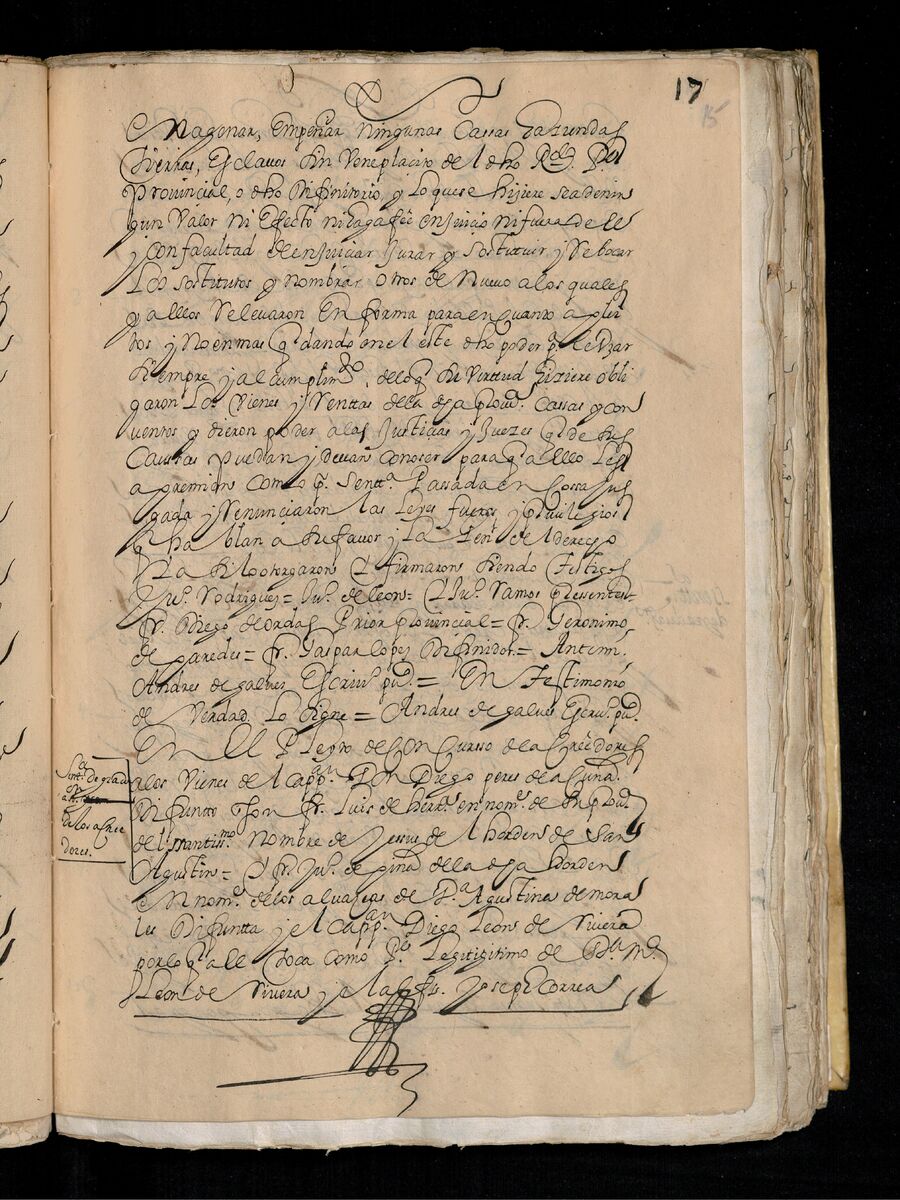 17
15
enagenar, empeñar ningunas Cassas haziendas
tierras, esclavos sin Veneplacito del dho Rdo. Pe
Provincial, o dho difinitorio, y loquese hiziere sea denin
gun Valor ni efecto nihagafee enjuicio nifuera de el
y con facultad de enjuiciar Jurar y sostituir y Rebocar
Los sostitutos y nombrar otros de nuevo alos quales
y aellos Relevaron En forma para en quanto a pleÿ
tos y no en mas qdando en el este dho poder pa le Vzar
siempre y al cumplimto, delo q su Virtud hiziere obli
garon Los Vienes y Renttas dela dha provª. Cassas y con
ventos y dieron poder alas Justicias y Juezes q de sus
Caussas puedan y devan conoser para q a ello Les
apremien Como pr. sentª. Passada en Cossa Jus
gada y Renunciaron las Leyes fueros y Privilegios
q hablan a su favor y La Gen. del derecho
y La si lo otorgaron e firmaron siendo testigos
Juº. Rodriguez = Juº. de leon = e Juº. Ramos presentes
fr. Diego de ordas Prior provincial = fr. Geronimo
de paredes = fr. Gaspar lopez Difinidor = Antemi
Andres de galves Escrivº. puco. = En Testimonio
de Verdad. Lo signe = Andres de galves Escrivº. puco.
En El Pleyto de Concurso de acreedores
alos Vienes del Cappan Don Diego peres dela Cuna
Difuntto son fr. Luis de herrª. en nome. de su Provª.
del santismo. Nombre de Jesus del horden de San
Agustin = e fr. Juº. de pina dela dha horden
En nome. delos alvaseas de Da. Agustina de mora
les Difuntta y el Cappan. Diego Leon de Rivera
por lo q a el toca como Pe. Legitimo de Da. Mª.
Leon de Rivera y el Joseph Correa
Sentª. de grados
a los acree
dores.